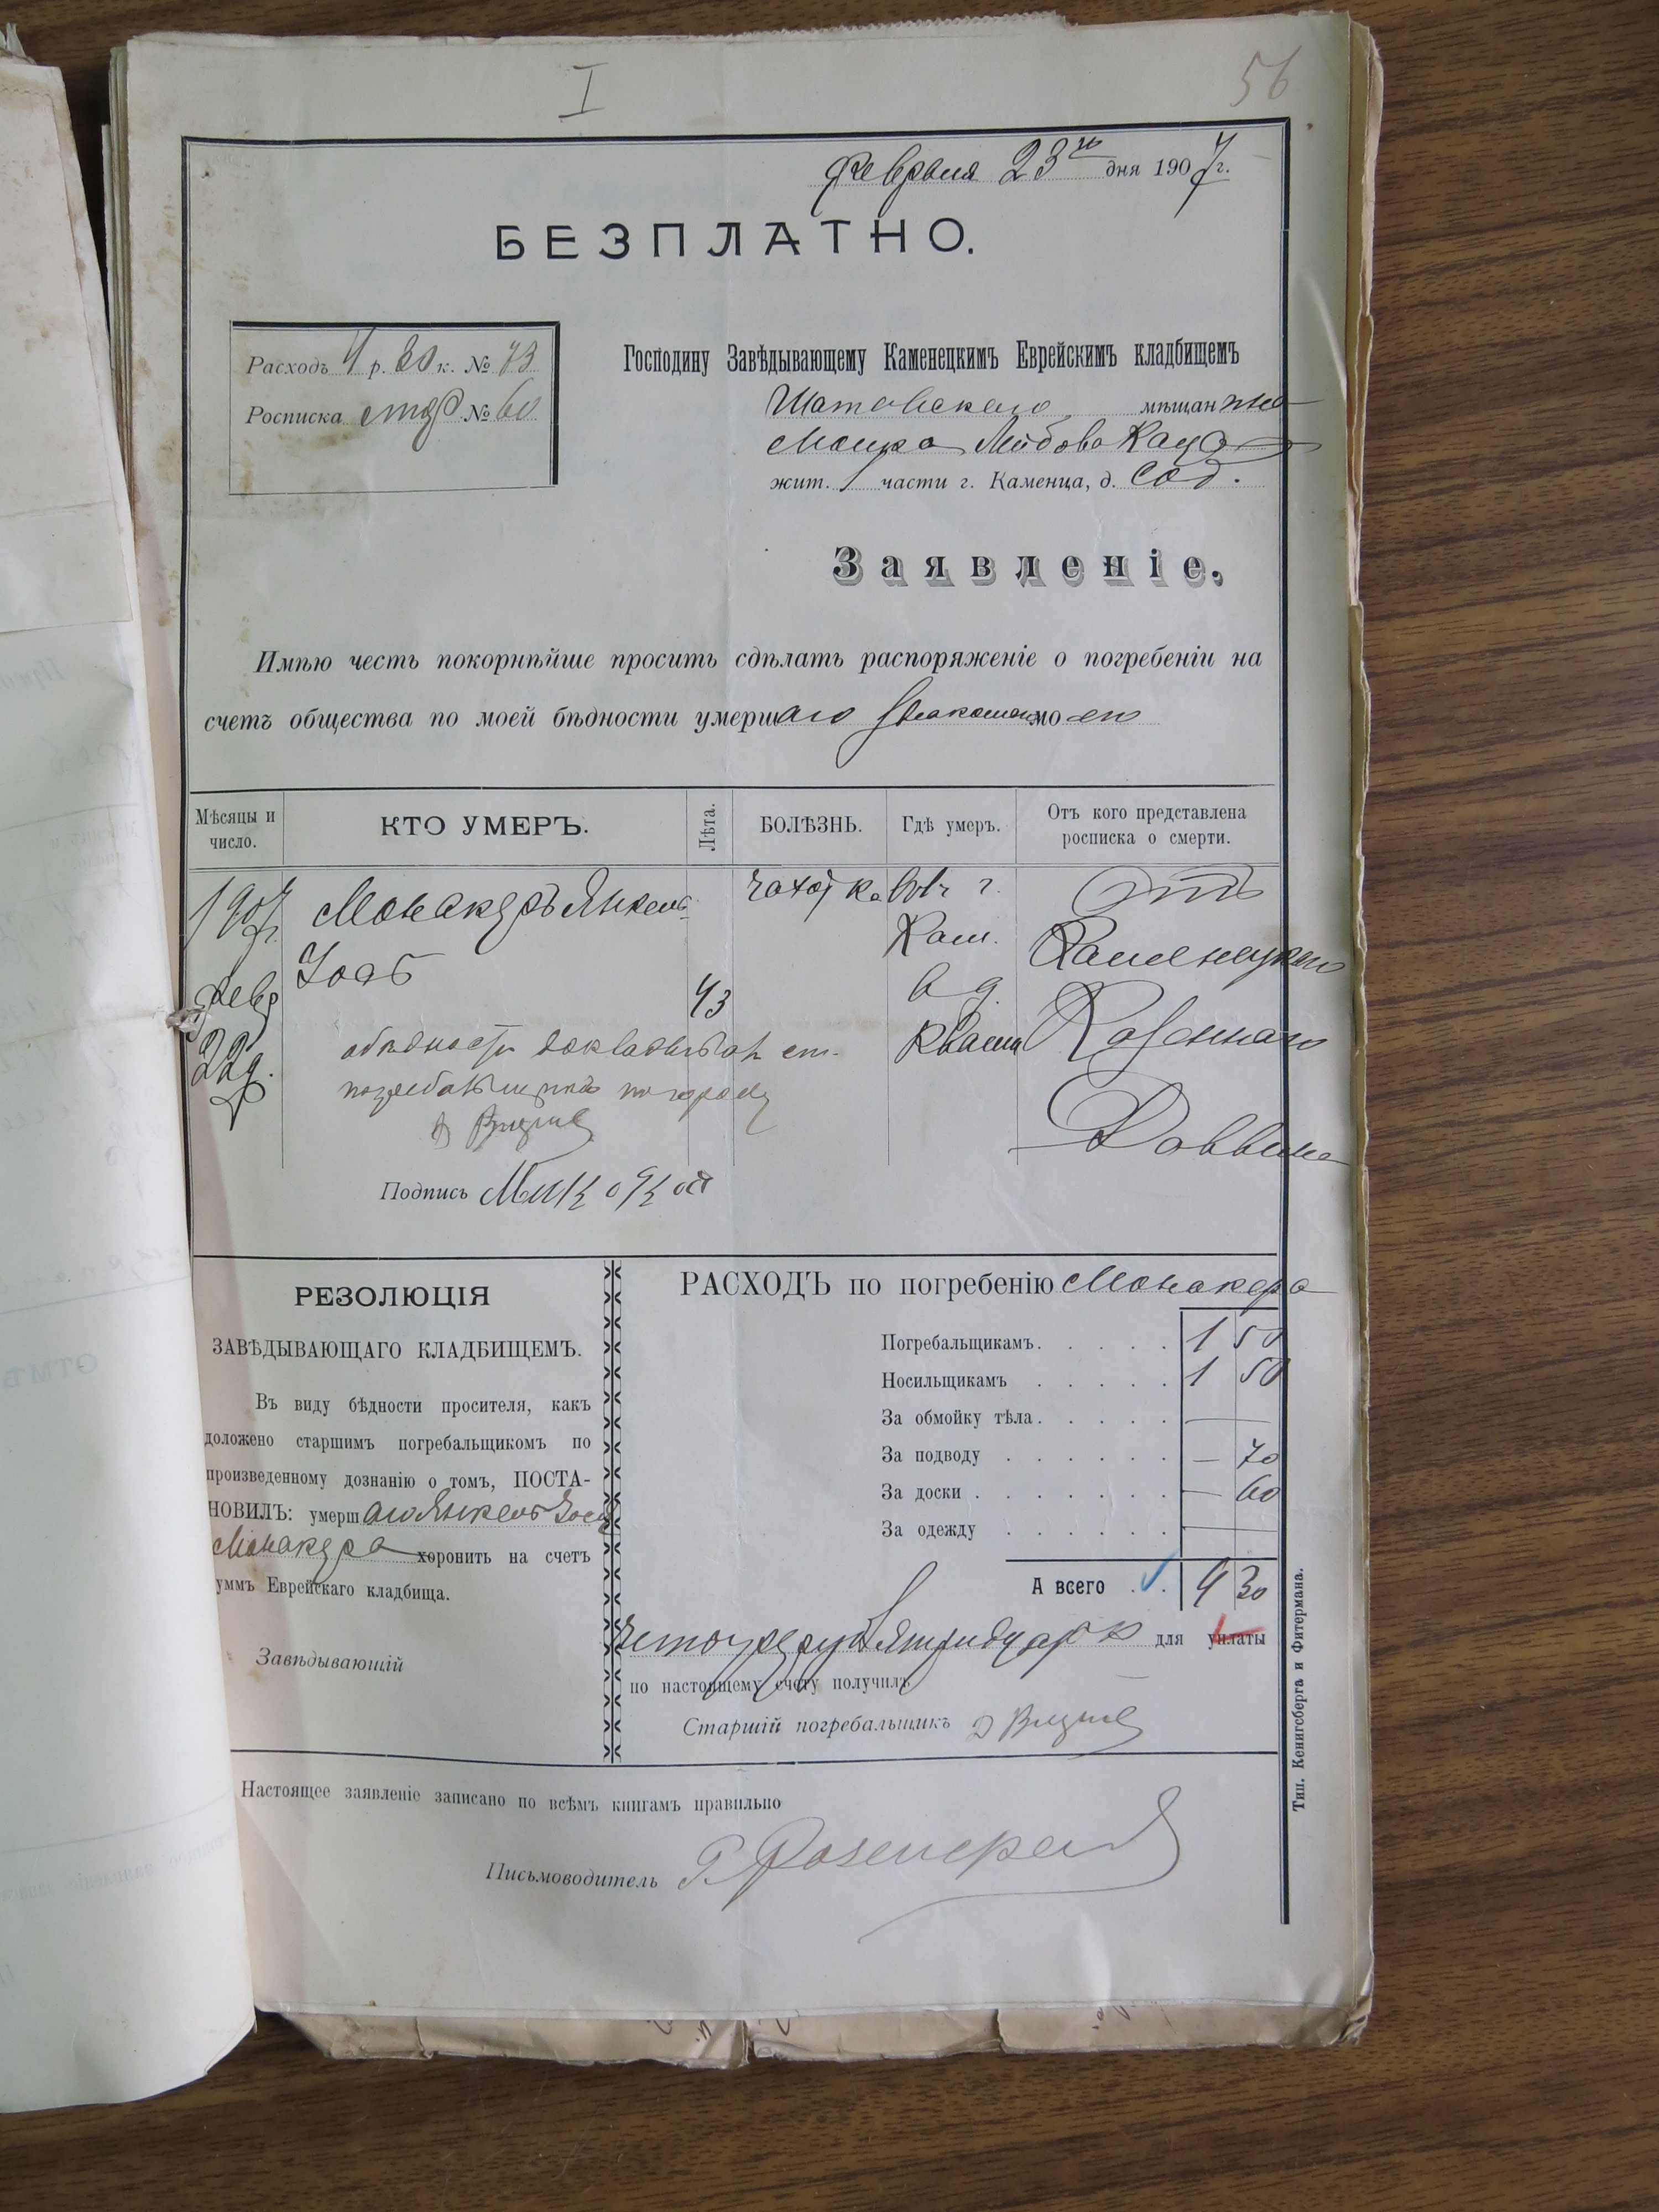 I
56
Февраля 23го дня 1907 г.
БЕЗПЛАТНО.
Расходъ 4 р. 30 к. № 73
Росписка № 60
Господину Завѣдывающему Каменецкимъ Еврейскимъ кладбищемъ
Шатавскаго мѣщанина
Мошка Лейбова Каца
жит. 1 части г. Каменца, д. соб.
Заявленіе.
Имѣю честь покорнѣйше просить сдѣлать распоряженіе о погребеніи на
счетъ общества по моей бѣдности умершаго знакомаго моего
Мѣсяцы и число.
КТО УМЕРЪ.
Лѣта.
БОЛѢЗНЬ.
Гдѣ умеръ.
Отъ кого представлена росписка о смерти.
1907 г. Монакеръ Янкель чахотка въ г. Отъ
Кам. Каменецкаго
Февр 43 в д. Казеннаго
22 д. Раввина
о бѣдности докладывалъ ст.
погребальщикъ по городу
Подпись
РЕЗОЛЮЦІЯ
ЗАВѢДЫВАЮЩАГО КЛАДБИЩЕМЪ.
Въ виду бѣдности просителя, какъ
доложено старшимъ погребальщикомъ по
произведенному дознанію о томъ, ПОСТА-
НОВИЛЪ: умершаго Янкель
Монакера хоронить на счетъ
уммъ Еврейскаго кладбища.
Завѣдывающій
РАСХОДЪ по погребенію Монакера
Погребальщикамъ. . . . . 1 50
Носильщикамъ . . . . . 1 50
За обмойку тѣла. . . . . —
За подводу . . . . . . — 70
За доски . . . . . . . — 60
За одежду . . . . . . —
А всего . . 4 30
Четыре руб. тридцать к для уплаты
по настоящему счету получилъ
Старшій погребальщикъ
Настоящее заявленіе записано по всѣмъ книгамъ правильно
Письмоводитель
Тип. Кенигсберга и Фитермана.